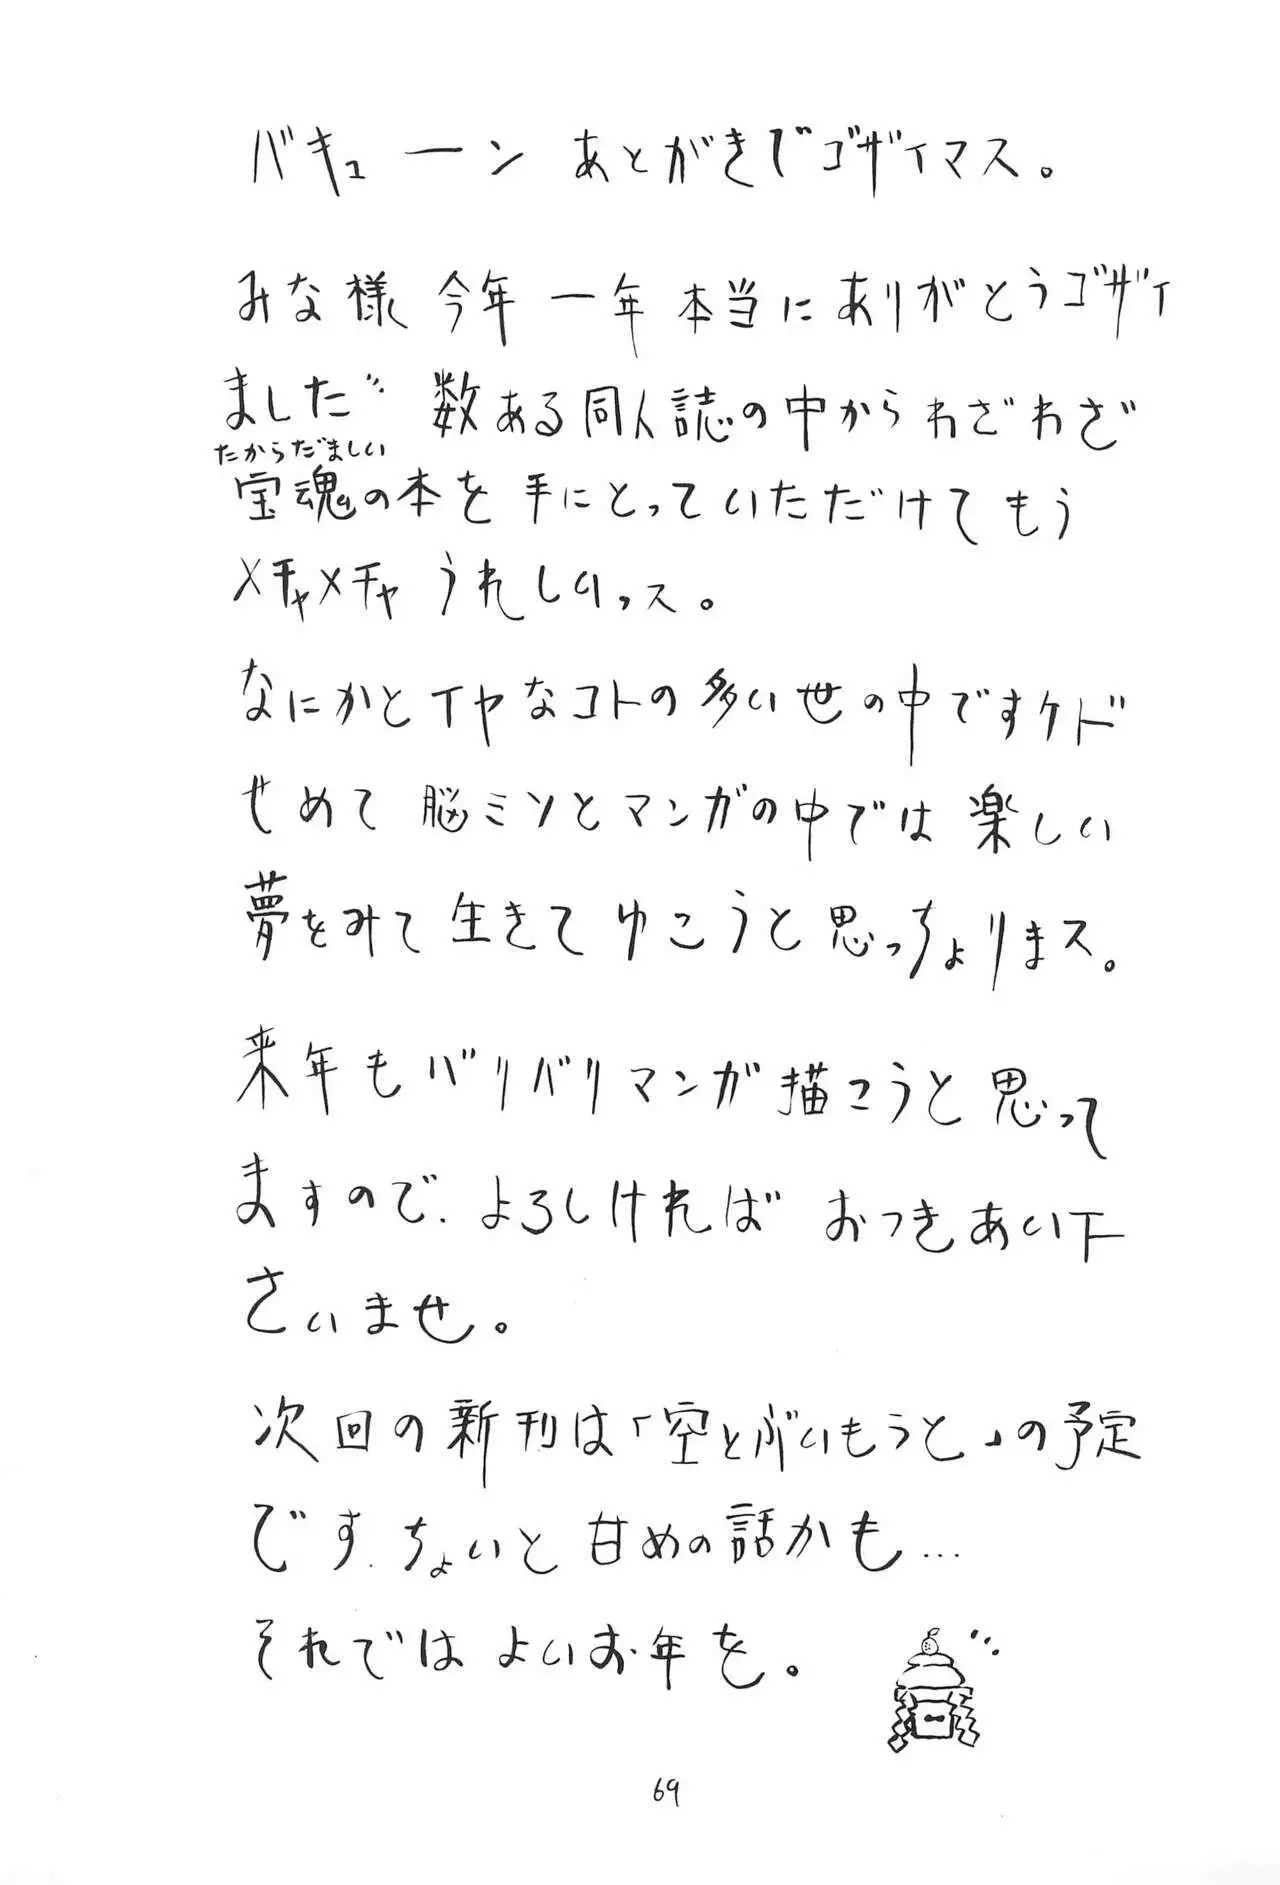 バキューン あとがきでゴザイマス。
みな様 今年一年 本当に ありがとうゴザイ
ました 数ある同人誌の中から わざわざ
たからだましい
宝魂の本を 手にとっていただけて もう
メチャメチャ うれしいっス。
なにかと イヤなコトの多い世の中ですケド
せめて 脳ミソとマンガの中では 楽しい
夢をみて 生きて ゆこうと 思っちょりまス。
来年も バリバリマンガ描こうと 思って
ますので、よろしければ おつきあい下
さいませ。
次回の新刊は「空とぶいもうと」の予定
です、ちょいと 甘めの話かも…
それでは よいお年を。
69